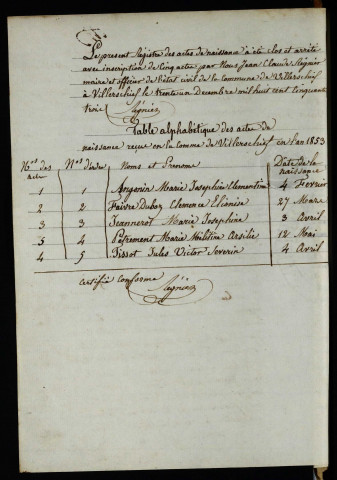 Le present Registre des actes de naissance à été clos et arrêté
avec inscription de Cinq actes par Nous Jean Claude Régnier
maire et officier de l'état civil de la commune de Villerschief
à Villerschief le trente un Decembre mil huit cent cinquante
trois Régnier
Table alphabétique des actes de
naissance reçus en la comme de Villerschief en l'an 1853
Nos des actes Nos d'ordre Noms et Prenoms Date de la naissance
1 1 Marie Josephine Clementine 4 Fevrier
2 2 Faivre Duboz Clemence Eléonore 27 Mars
3 3 Jeannerot Marie Josephine 3 Avril
5 4 Marie Arsilie 12 Mai
4 5 Tissot Jules Victor Severin 4 Avril
Certifié conforme
Régnier